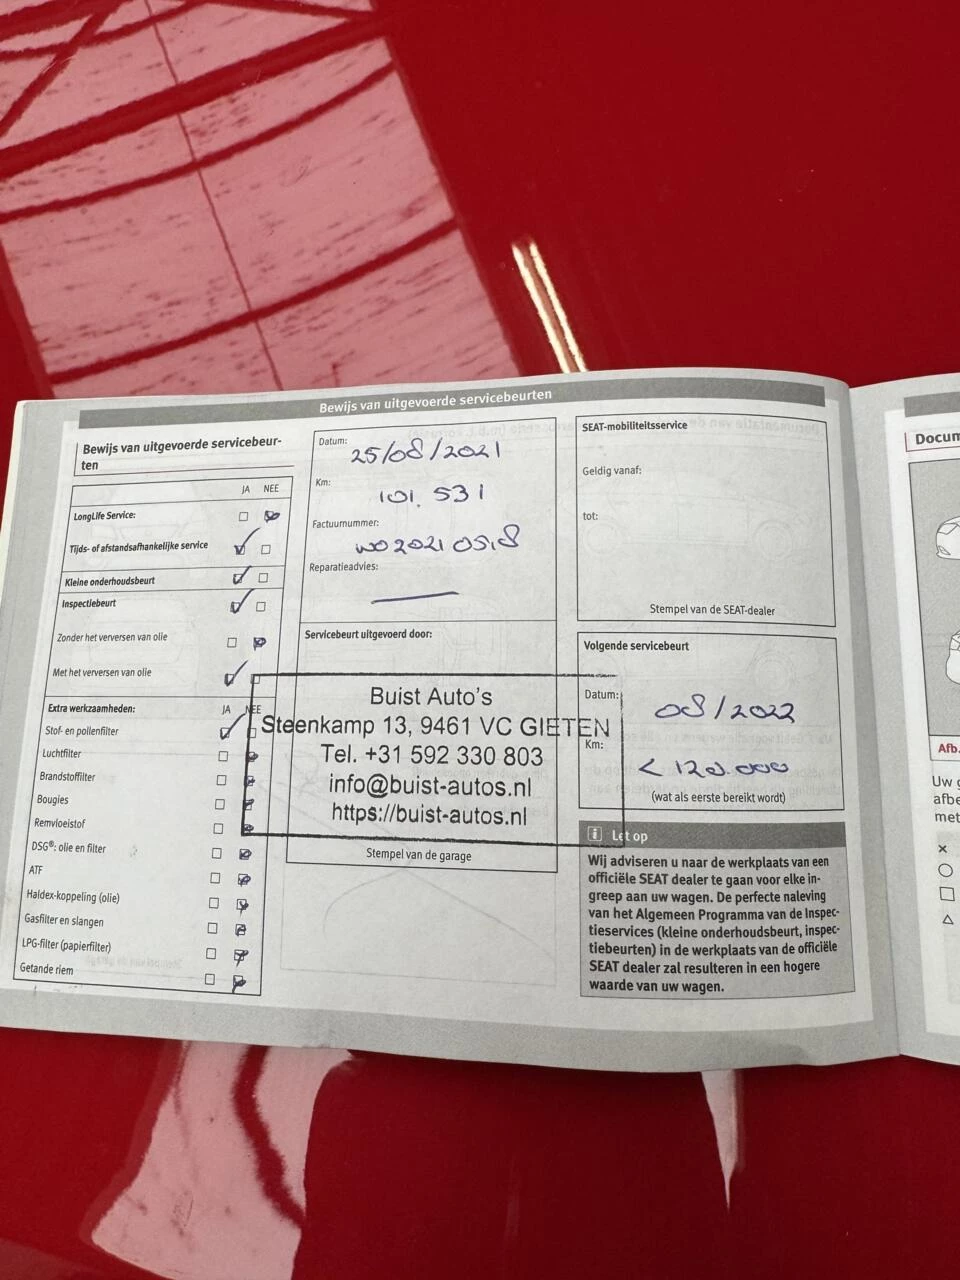 Bewijs van uitgevoerde servicebeurten
Bewijs van uitgevoerde servicebeur-
ten
JA NEE
LongLife Service:
Tijds- of afstandsafhankelijke service
Kleine onderhoudsbeurt
Inspectiebeurt
Zonder het verversen van olie
Met het verversen van olie
Extra werkzaamheden: JA NEE
Stof- en pollenfilter
Luchtfilter
Brandstoffilter
Bougies
Remvloeistof
DSG®: olie en filter
ATF
Haldex-koppeling (olie)
Gasfilter en slangen
LPG-filter (papierfilter)
Getande riem
Datum:
25/08/2021
Km:
101.531
Factuurnummer:
Reparatieadvies:
Servicebeurt uitgevoerd door:
Buist Auto's
Steenkamp 13, 9461 VC GIETEN
Tel. +31 592 330 803
info@buist-autos.nl
https://buist-autos.nl
Stempel van de garage
SEAT-mobiliteitsservice
Geldig vanaf:
tot:
Stempel van de SEAT-dealer
Volgende servicebeurt
Datum:
08/2022
Km:
< 120.000
(wat als eerste bereikt wordt)
i Let op
Wij adviseren u naar de werkplaats van een
officiële SEAT dealer te gaan voor elke in-
greep aan uw wagen. De perfecte naleving
van het Algemeen Programma van de Inspec-
tieservices (kleine onderhoudsbeurt, inspec-
tiebeurten) in de werkplaats van de officiële
SEAT dealer zal resulteren in een hogere
waarde van uw wagen.
Docum
Afb.
Uw g
afbe
met